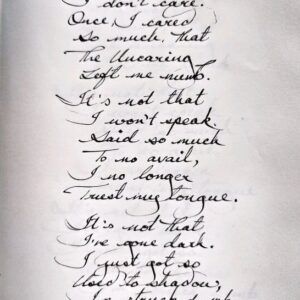 I don't care.
Once, I cared
so much, that
The Uncaring
Left me numb.
It's not that
I won't speak.
Said so much
To no avail,
I no longer
Trust my tongue.
It's not that
I've gone dark.
I just got so
Used to shadow,